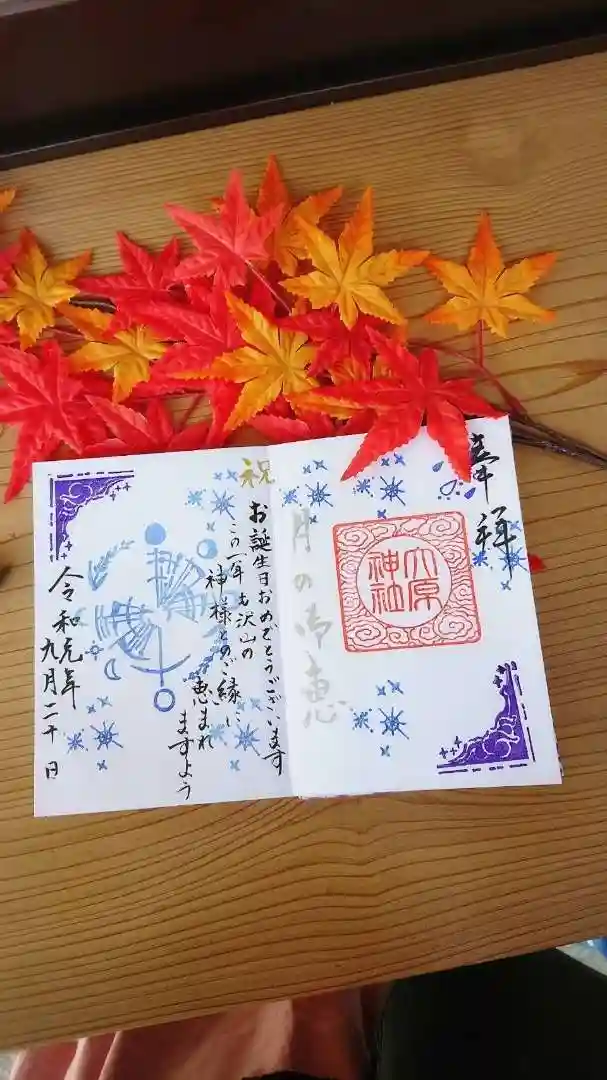 奉拝
大原
神社
月の御恵
祝
お誕生日おめでとうございます
この一年も沢山の
神様とのご縁に
恵まれ
ますよう
令和元年
九月二十日